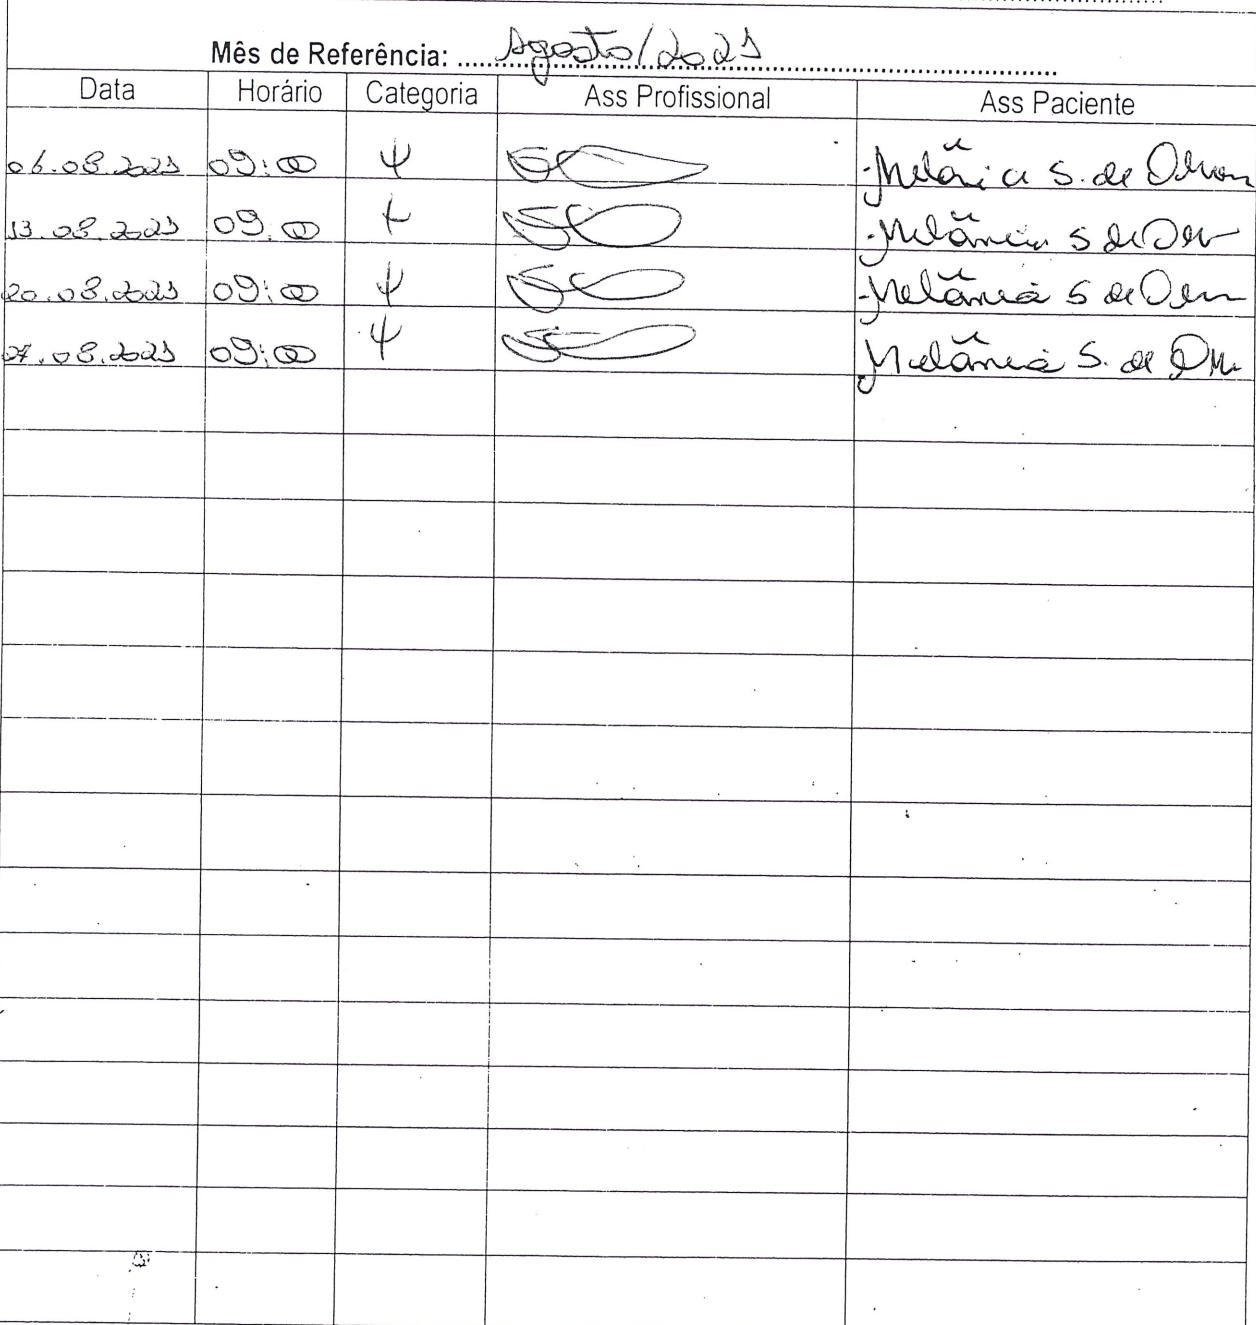 Mês de Referência: Agosto/2021
Data Horário Categoria Ass Profissional Ass Paciente
06.08.2021 09:00 Ψ Melânia S. de
13.08.2021 09:00 Ψ Melânia S de
20.08.2021 09:00 Ψ Melânia S de
27.08.2021 09:00 Ψ Melânia S. de